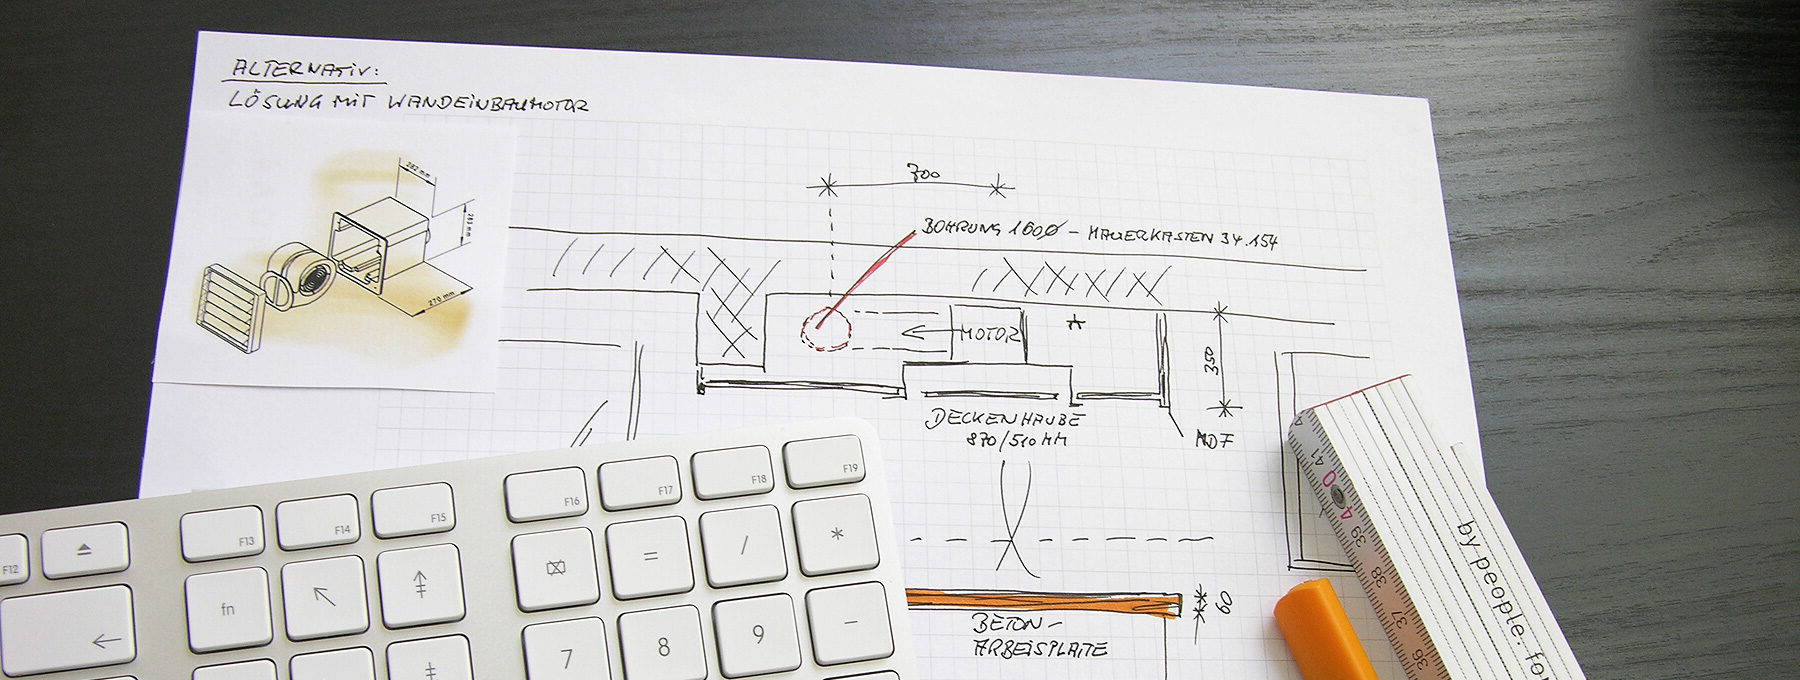 ALTERNATIV:
LÖSUNG MIT WANDEINBAUMOTOR
282 mm
283 mm
270 mm
700
BOHRUNG 160Ø - MAUERKASTEN 34.154
MOTOR
350
DECKENHAUBE
870/510 MM
MDF
BETON-
ARBEISPLATE
60
F12
F13
F14
F15
F16
F17
F18
F19
fn
=
/
*
7
8
9
-
41
40
39
38
37
36
by people. fo